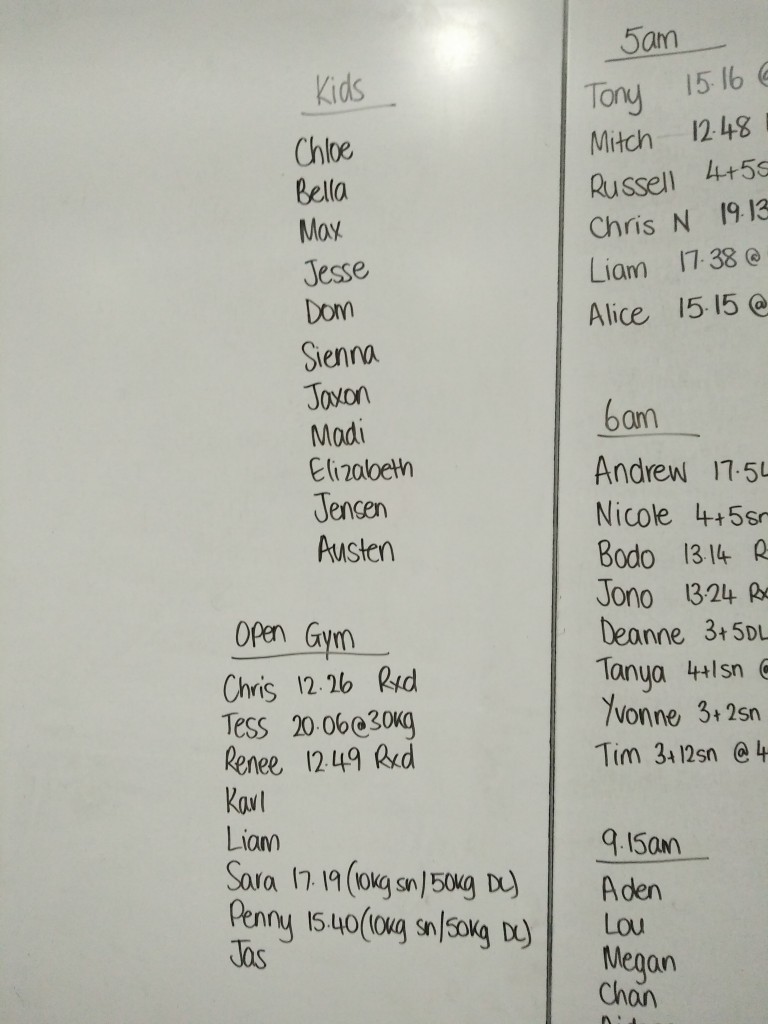 Kids
Chloe
Bella
Max
Jesse
Dom
Sienna
Jaxon
Madi
Elizabeth
Jensen
Austen
Open Gym
Chris 12.26 Rxd
Tess 20.06@30kg
Renee 12.49 Rxd
Karl
Liam
Sara 17.19(10kg sn/50kg DL)
Penny 15.40(10kg sn/50kg DL)
Jas
5am
Tony 15.16 @
Mitch 12.48
Russell 4+5s
Chris N 19.13
Liam 17.38 @
Alice 15.15 @
6am
Andrew 17.54
Nicole 4+5sn
Bodo 13.14 R
Jono 13.24 Rx
Deanne 3+5DL
Tanya 4+1sn @
Yvonne 3+2sn
Tim 3+12sn @ 4
9.15am
Aden
Lou
Megan
Chan